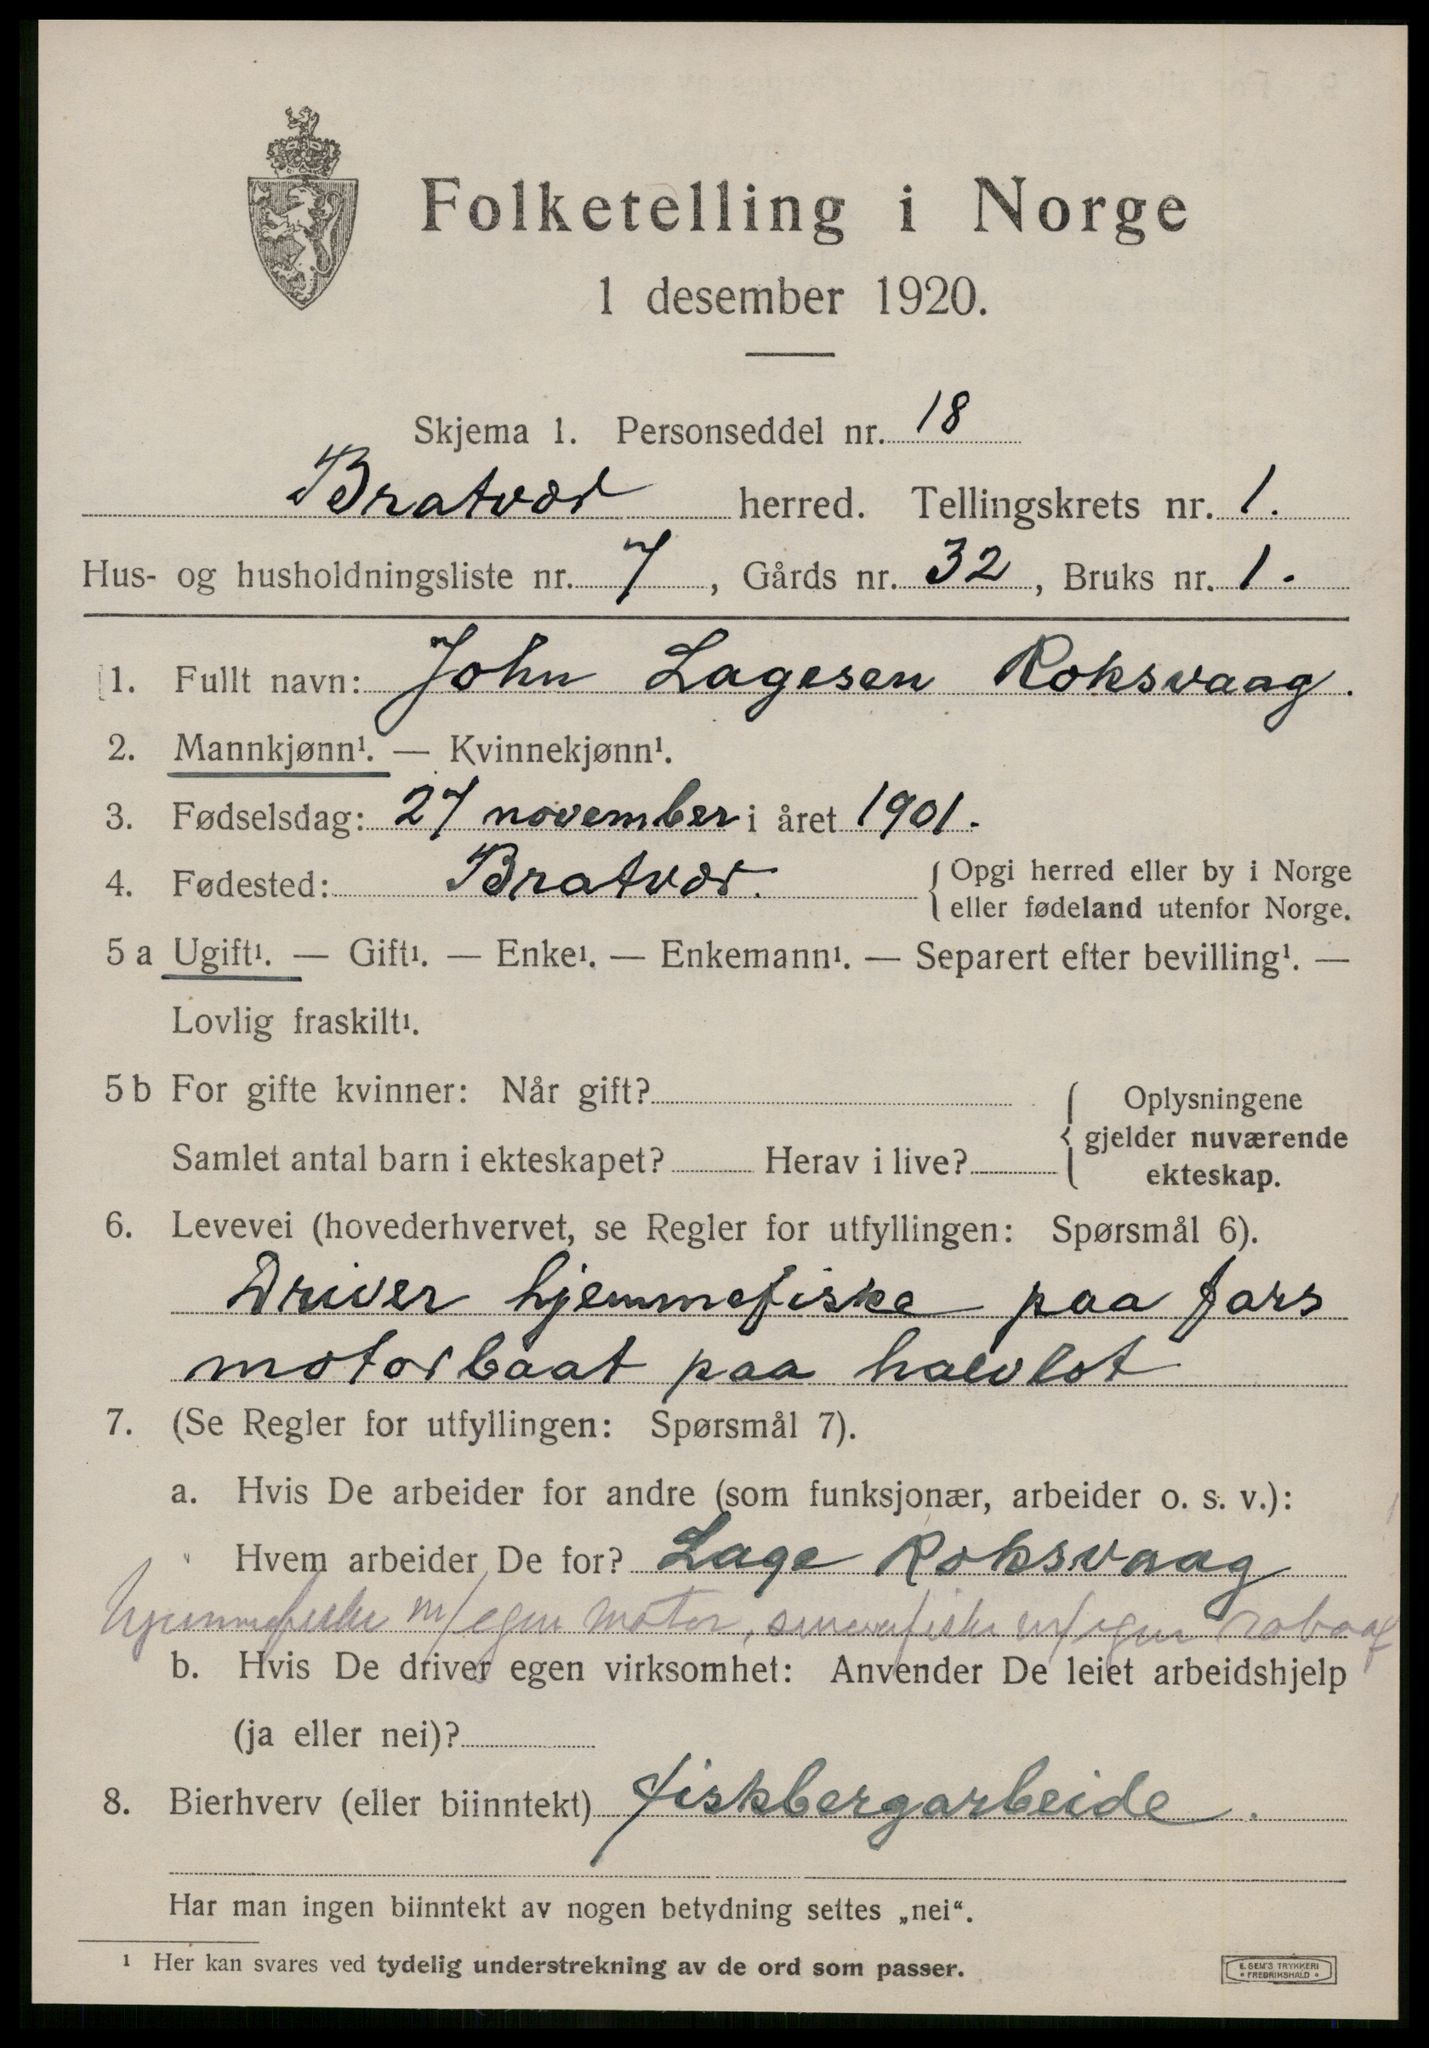 Folketelling i Norge
1 desember 1920.
Skjema 1. Personseddel nr. 18
Bratvær herred. Tellingskrets nr. 1.
Hus- og husholdningsliste nr. 7, Gårds nr. 32, Bruks nr. 1.
1. Fullt navn: John Lagesen Roksvaag.
2. Mannkjønn¹. — Kvinnekjønn¹.
3. Fødselsdag: 27 november i året 1901.
4. Fødested: Bratvær. { Opgi herred eller by i Norge
eller fødeland utenfor Norge.
5 a Ugift¹. — Gift¹. — Enke¹. — Enkemann¹. — Separert efter bevilling¹. —
Lovlig fraskilt¹.
5 b For gifte kvinner: Når gift?
Samlet antal barn i ekteskapet? Herav i live?
{ Oplysningene
gjelder nuværende
ekteskap.
6. Levevei (hovederhvervet, se Regler for utfyllingen: Spørsmål 6).
Driver hjemmefiske paa fars
motorbaat paa halvlot
7. (Se Regler for utfyllingen: Spørsmål 7).
a. Hvis De arbeider for andre (som funksjonær, arbeider o. s. v.):
Hvem arbeider De for? Lage Roksvaag
hjemmefiske m/egen motor, m/egen
b. Hvis De driver egen virksomhet: Anvender De leiet arbeidshjelp
(ja eller nei)?
8. Bierhverv (eller biinntekt) fiskbergarbeide.
Har man ingen biinntekt av nogen betydning settes „nei“.
¹ Her kan svares ved tydelig understrekning av de ord som passer.
E. SEM'S TRYKKERI
* FREDRIKSHALD *